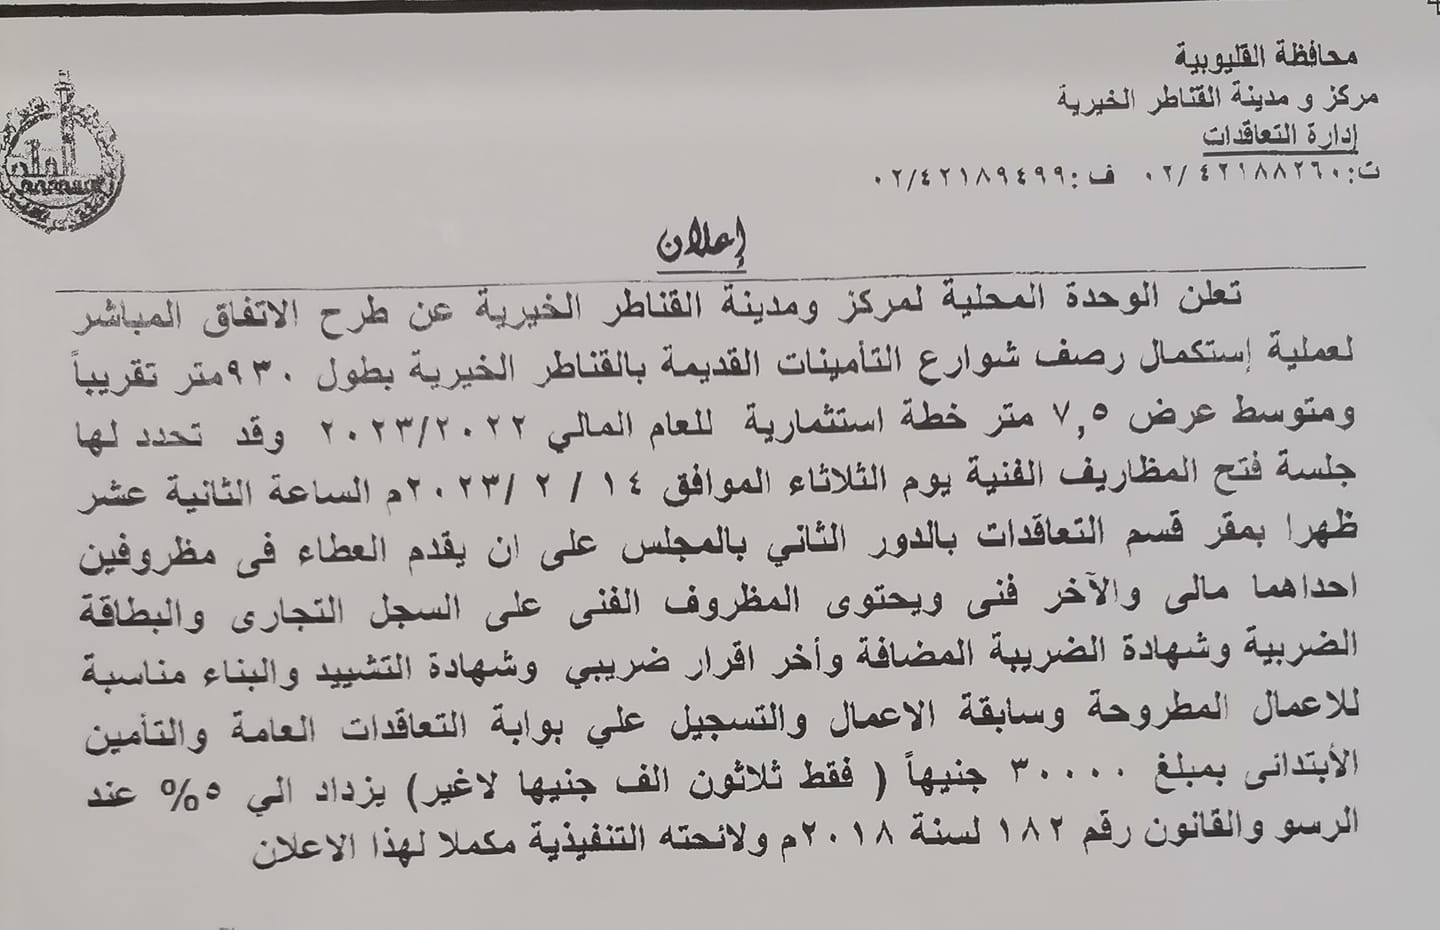 محافظة القليوبية
مركز و مدينة القناطر الخيرية
إدارة التعاقدات
ت: ٠٢/٤٢١٨٨٢٦٠ ف: ٠٢/٤٢١٨٩٤٩٩
إعلان
تعلن الوحدة المحلية لمركز ومدينة القناطر الخيرية عن طرح الاتفاق المباشر
لعملية إستكمال رصف شوارع التأمينات القديمة بالقناطر الخيرية بطول ٩٣٠متر تقريباً
ومتوسط عرض ٧,٥ متر خطة استثمارية للعام المالي ٢٠٢٣/٢٠٢٢ وقد تحدد لها
جلسة فتح المظاريف الفنية يوم الثلاثاء الموافق ١٤ / ٢ /٢٠٢٣م الساعة الثانية عشر
ظهرا بمقر قسم التعاقدات بالدور الثاني بالمجلس على ان يقدم العطاء فى مظروفين
احداهما مالى والآخر فنى ويحتوى المظروف الفنى على السجل التجارى والبطاقة
الضربية وشهادة الضريبة المضافة وأخر اقرار ضريبي وشهادة التشييد والبناء مناسبة
للاعمال المطروحة وسابقة الاعمال والتسجيل علي بوابة التعاقدات العامة والتأمين
الأبتدائى بمبلغ ٣٠٠٠٠ جنيهاً ( فقط ثلاثون الف جنيها لاغير) يزداد الي ٥% عند
الرسو والقانون رقم ١٨٢ لسنة ٢٠١٨م ولائحته التنفيذية مكملا لهذا الاعلان